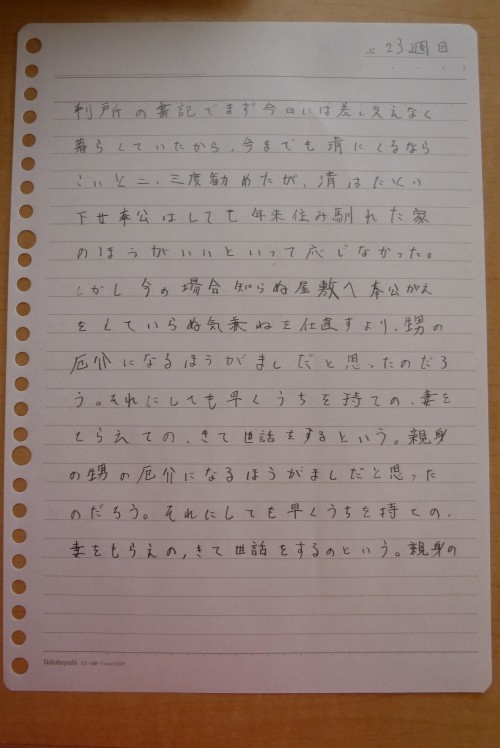 23週目
判所の書記でまず今日には差し支えなく
暮らしていたから、今までも清にくるなら
こいと二、三度勧めたが、清はたとい
下女奉公はしても年来住み馴れた家
のほうがいいといって応じなかった。
しかし今の場合知らぬ屋敷へ奉公がえ
をしていらぬ気兼ねを仕直すより、甥の
厄介になるほうがましだと思ったのだろ
う。それにしても早くうちを持ての、妻を
もらえての、きて世話をするという。親身
の甥の厄介になるほうがましだと思った
のだろう。それにしても早くうちを持ての、
妻をもらえの、きて世話をするのという。親身の
Nakabayashi